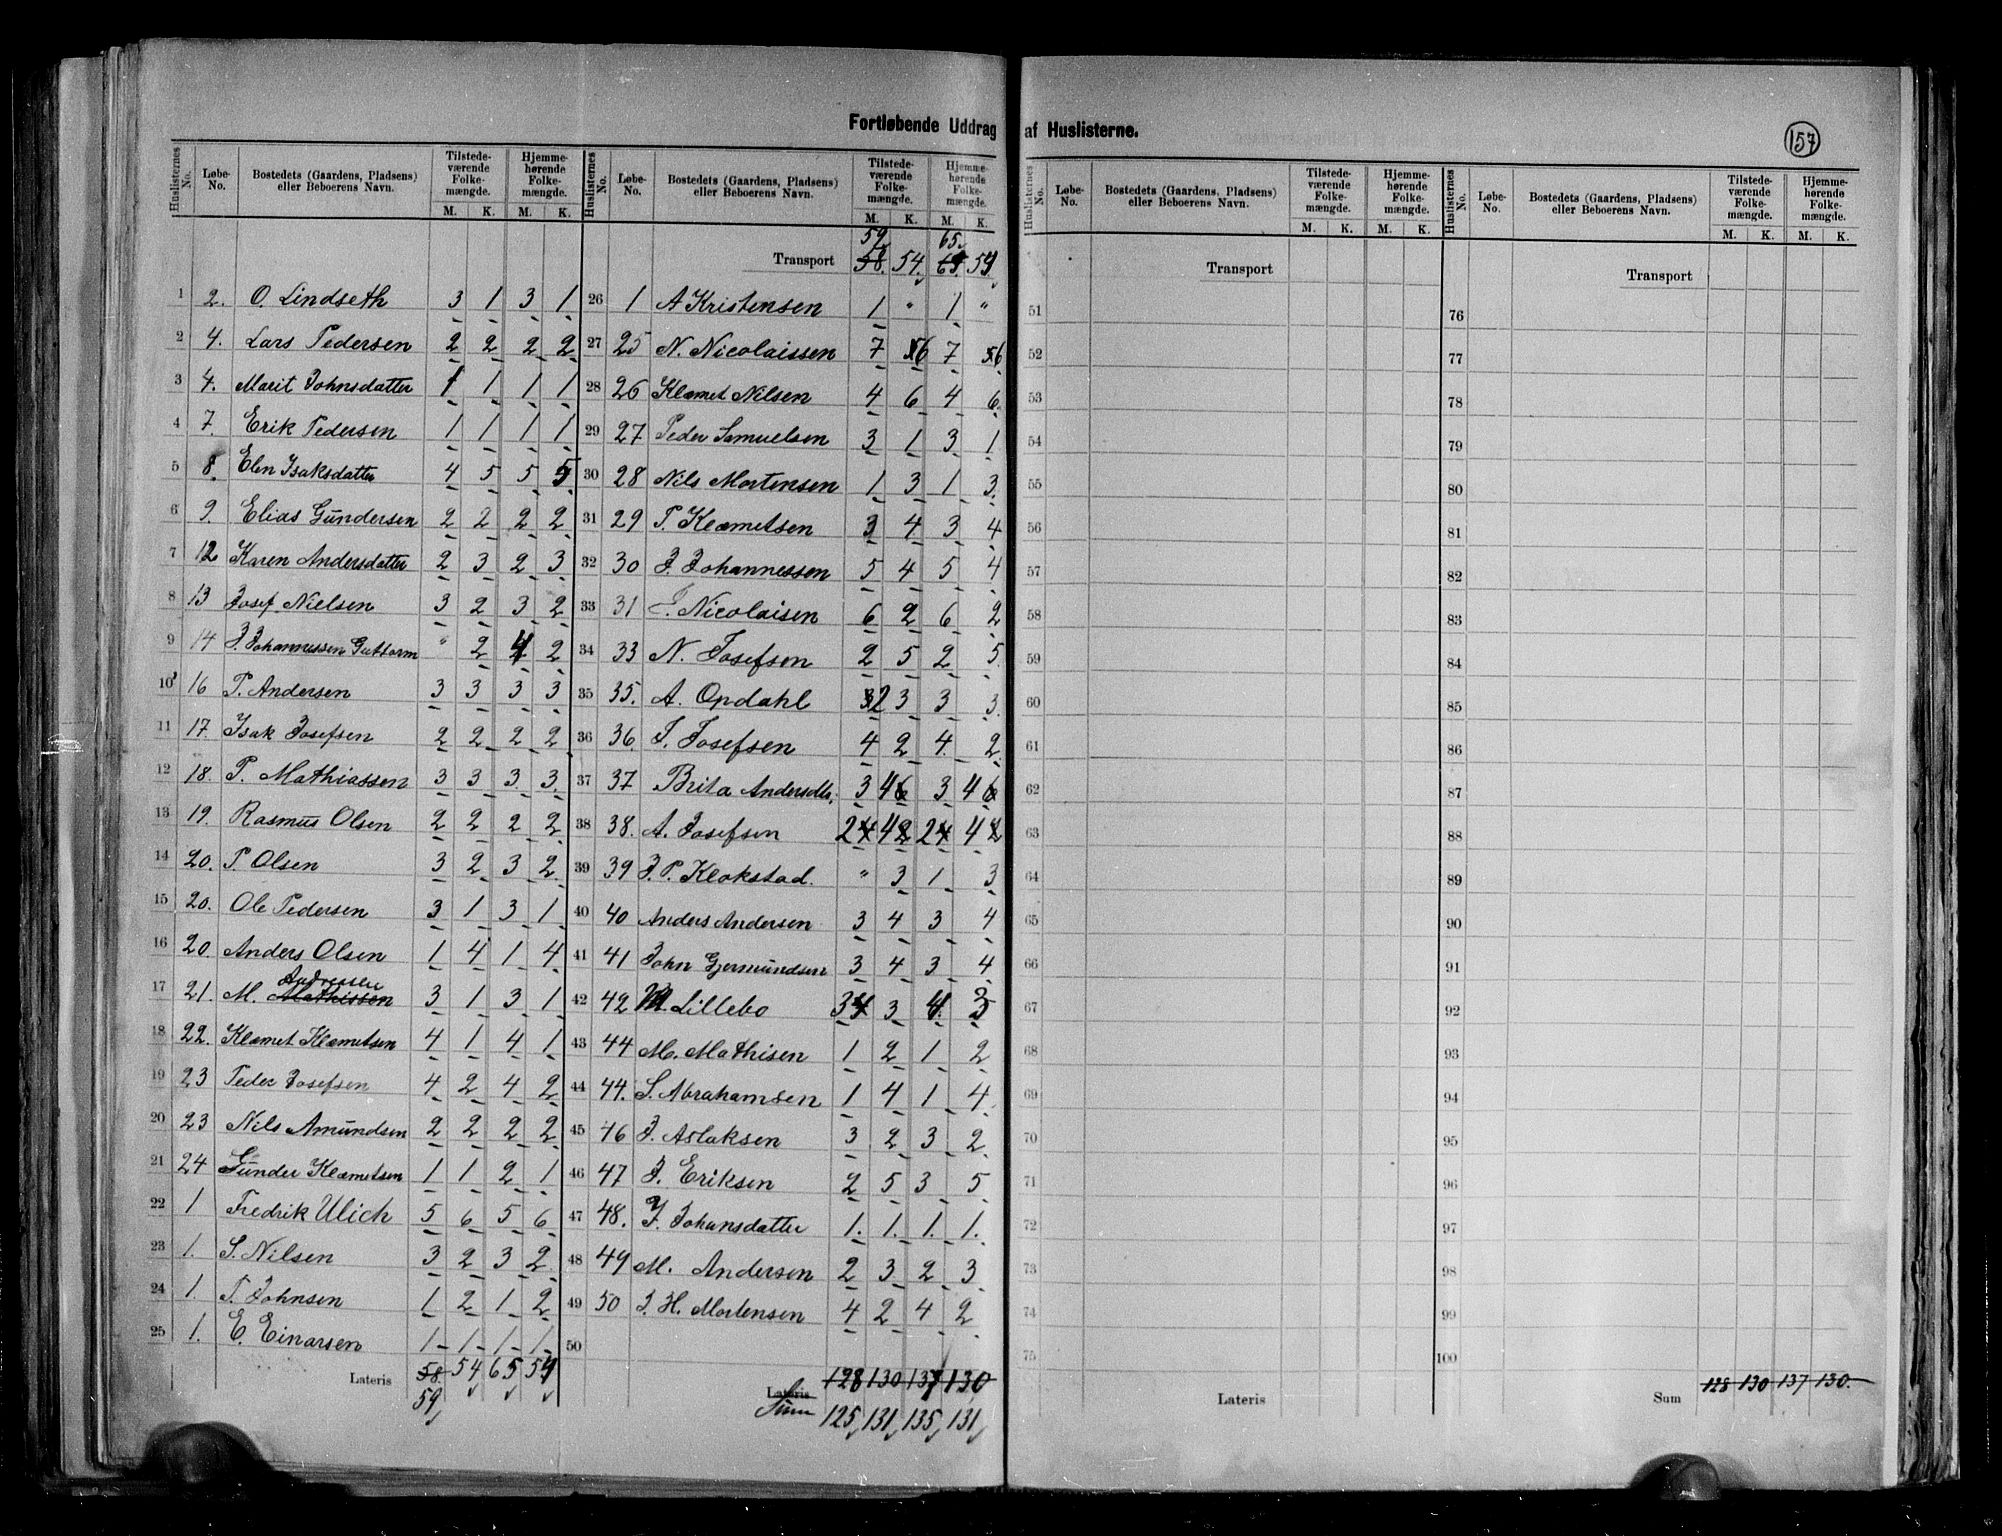 Fortløbende Uddrag af Huslisterne.
157
Huslisternes No. | Løbe-No. | Bostedets (Gaardens, Pladsens) eller Beboerens Navn. | Tilstedeværende Folkemængde. M. K. | Hjemmehørende Folkemængde. M. K.
1 2. O. Lindseth 3 1 3 1
2 4. Lars Pedersen 2 2 2 2
3 4. Marit Johnsdatter 1 1 1 1
4 7. Erik Pedersen 1 1 1 1
5 8. Elen Isaksdatter 4 5 5 5
6 9. Elias Gundersen 2 2 2 2
7 12 Karen Andersdatter 2 3 2 3
8 13 Josef Nielsen 3 2 3 2
9 14 J. Johannessen Guttorm " 2 4 2
10 16 P. Andersen 3 3 3 3
11 17. Isak Josefsen 2 2 2 2
12 18. P. Mathiassen 3 3 3 3
13 19. Rasmus Olsen 2 2 2 2
14 20. P. Olsen 3 2 3 2
15 20. Ole Pedersen 3 1 3 1
16 20. Anders Olsen 1 4 1 4
17 21. M. Mathissen Andressen 3 1 3 1
18 22. Klemet Klemetsen 4 1 4 1
19 23 Peder Josefsen 4 2 4 2
20 23 Nils Amundsen 2 2 2 2
21 24 Gunder Klemetsen 1 1 2 1
22 1 Fredrik Ulich 5 6 5 6
23 1. S. Nilsen 3 2 3 2
24 1. T. Johnsen 1 2 1 2
25 1. E. Einarsen 1 1 1 1
Lateris 58. 54 65 54
59
Huslisternes No. | Løbe-No. | Bostedets (Gaardens, Pladsens) eller Beboerens Navn. | Tilstedeværende Folkemængde. M. K. | Hjemmehørende Folkemængde. M. K.
59 65.
Transport 58. 54. 65. 54
26 1 A Kristensen 1 " 1 "
27 25 N. Nicolaissen 7 56 7 56
28 26 Klemet Nilsen 4 6 4 6
29 27 Peder Samuelsen 3 1 3 1
30 28 Nils Mortensen 1 3 1 3
31 29 P. Klemetsen 3 4 3 4
32 30 J. Johannessen 5 4 5 4
33 31 J. Nicolaisen 6 2 6 2
34 33 N. Josefsen 2 5 2 5
35 35. A. Opdahl 32 3 3 3
36 36. J. Josefsen 4 2 4 2
37 37 Brita Andersdtr. 3 46 3 46
38 38. A. Josefsen 24 42 24 42
39 39 J. P. Klokstad. " 3 1 3
40 40 Anders Andersen 3 4 3 4
41 41 John Gjermundsen 3 4 3 4
42 42 M. Lillebo 34 3 4 3
43 44 M. Mathisen 1 2 1 2
44 44. S. Abrahamsen 1 4 1 4
45 46 J. Aslaksen 3 2 3 2
46 47 J. Eriksen 2 5 3 5
47 48. J. Johansdatter 1. 1. 1. 1.
48 49 M. Andersen 2 3 2 3
49 50 J. H. Mortensen 4 2 4 2
50
Lateris 128 130 137 130
Sum 125 131 135 131
Huslisternes No. | Løbe-No. | Bostedets (Gaardens, Pladsens) eller Beboerens Navn. | Tilstedeværende Folkemængde. M. K. | Hjemmehørende Folkemængde. M. K.
Transport
51
52
53
54
55
56
57
58
59
60
61
62
63
64
65
66
67
68
69
70
71
72
73
74
75
Lateris
Huslisternes No. | Løbe-No. | Bostedets (Gaardens, Pladsens) eller Beboerens Navn. | Tilstedeværende Folkemængde. M. K. | Hjemmehørende Folkemængde. M. K.
Transport
76
77
78
79
80
81
82
83
84
85
86
87
88
89
90
91
92
93
94
95
96
97
98
99
100
Sum 128 130 137 130.